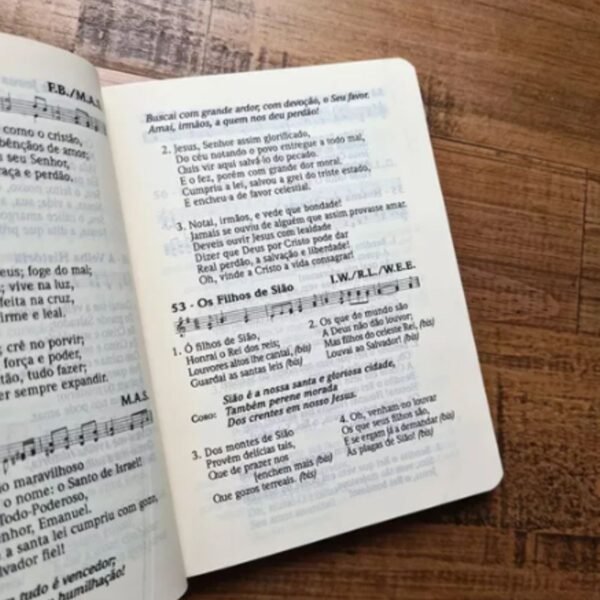 F.B./M.A.S.
como o cristão,
bênçãos de amor;
seu Senhor,
raça e perdão.
eus; foge do mal;
; vive na luz,
feita na cruz,
irme e leal.
; crê no porvir;
força e poder,
tão, tudo fazer;
er sempre expandir.
M.A.S.
o maravilhoso
o nome: o Santo de Israel!
Todo-Poderoso,
nhor, Emanuel.
a santa lei cumpriu com gozo,
lvador fiel!
m tudo é vencedor;
humilhação!
Buscai com grande ardor, com devoção, o Seu favor.
Amai, irmãos, a quem nos deu perdão!
2. Jesus, Senhor assim glorificado,
Do céu notando o povo entregue a todo mal,
Quis vir aqui salvá-lo do pecado.
E o fez, porém com grande dor moral.
Cumpriu a lei, salvou a grei do triste estado,
E encheu-a de favor celestial!
3. Notai, irmãos, e vede que bondade!
Jamais se ouviu de alguém que assim provasse amar.
Deveis ouvir Jesus com lealdade
Dizer que Deus por Cristo pode dar
Real perdão, a salvação e liberdade!
Oh, vinde a Cristo a vida consagrar!
53 - Os Filhos de Sião I.W./R.L./W.E.E.
1. Ó filhos de Sião,
Honrai o Rei dos reis;
Louvores altos lhe cantai, (bis)
Guardai as santas leis (bis)
2. Os que do mundo são
A Deus não dão louvor;
Mas filhos do celeste Rei, (bis)
Louvai ao Salvador! (bis)
Coro: Sião é a nossa santa e gloriosa cidade,
Também perene morada
Dos crentes em nosso Jesus.
3. Dos montes de Sião
Provêm delícias tais,
Que de prazer nos
enchem mais (bis)
Que gozos terreais. (bis)
4. Oh, venham-no louvar
Os que seus filhos são,
E se ergam já a demandar (bis)
As plagas de Sião! (bis)